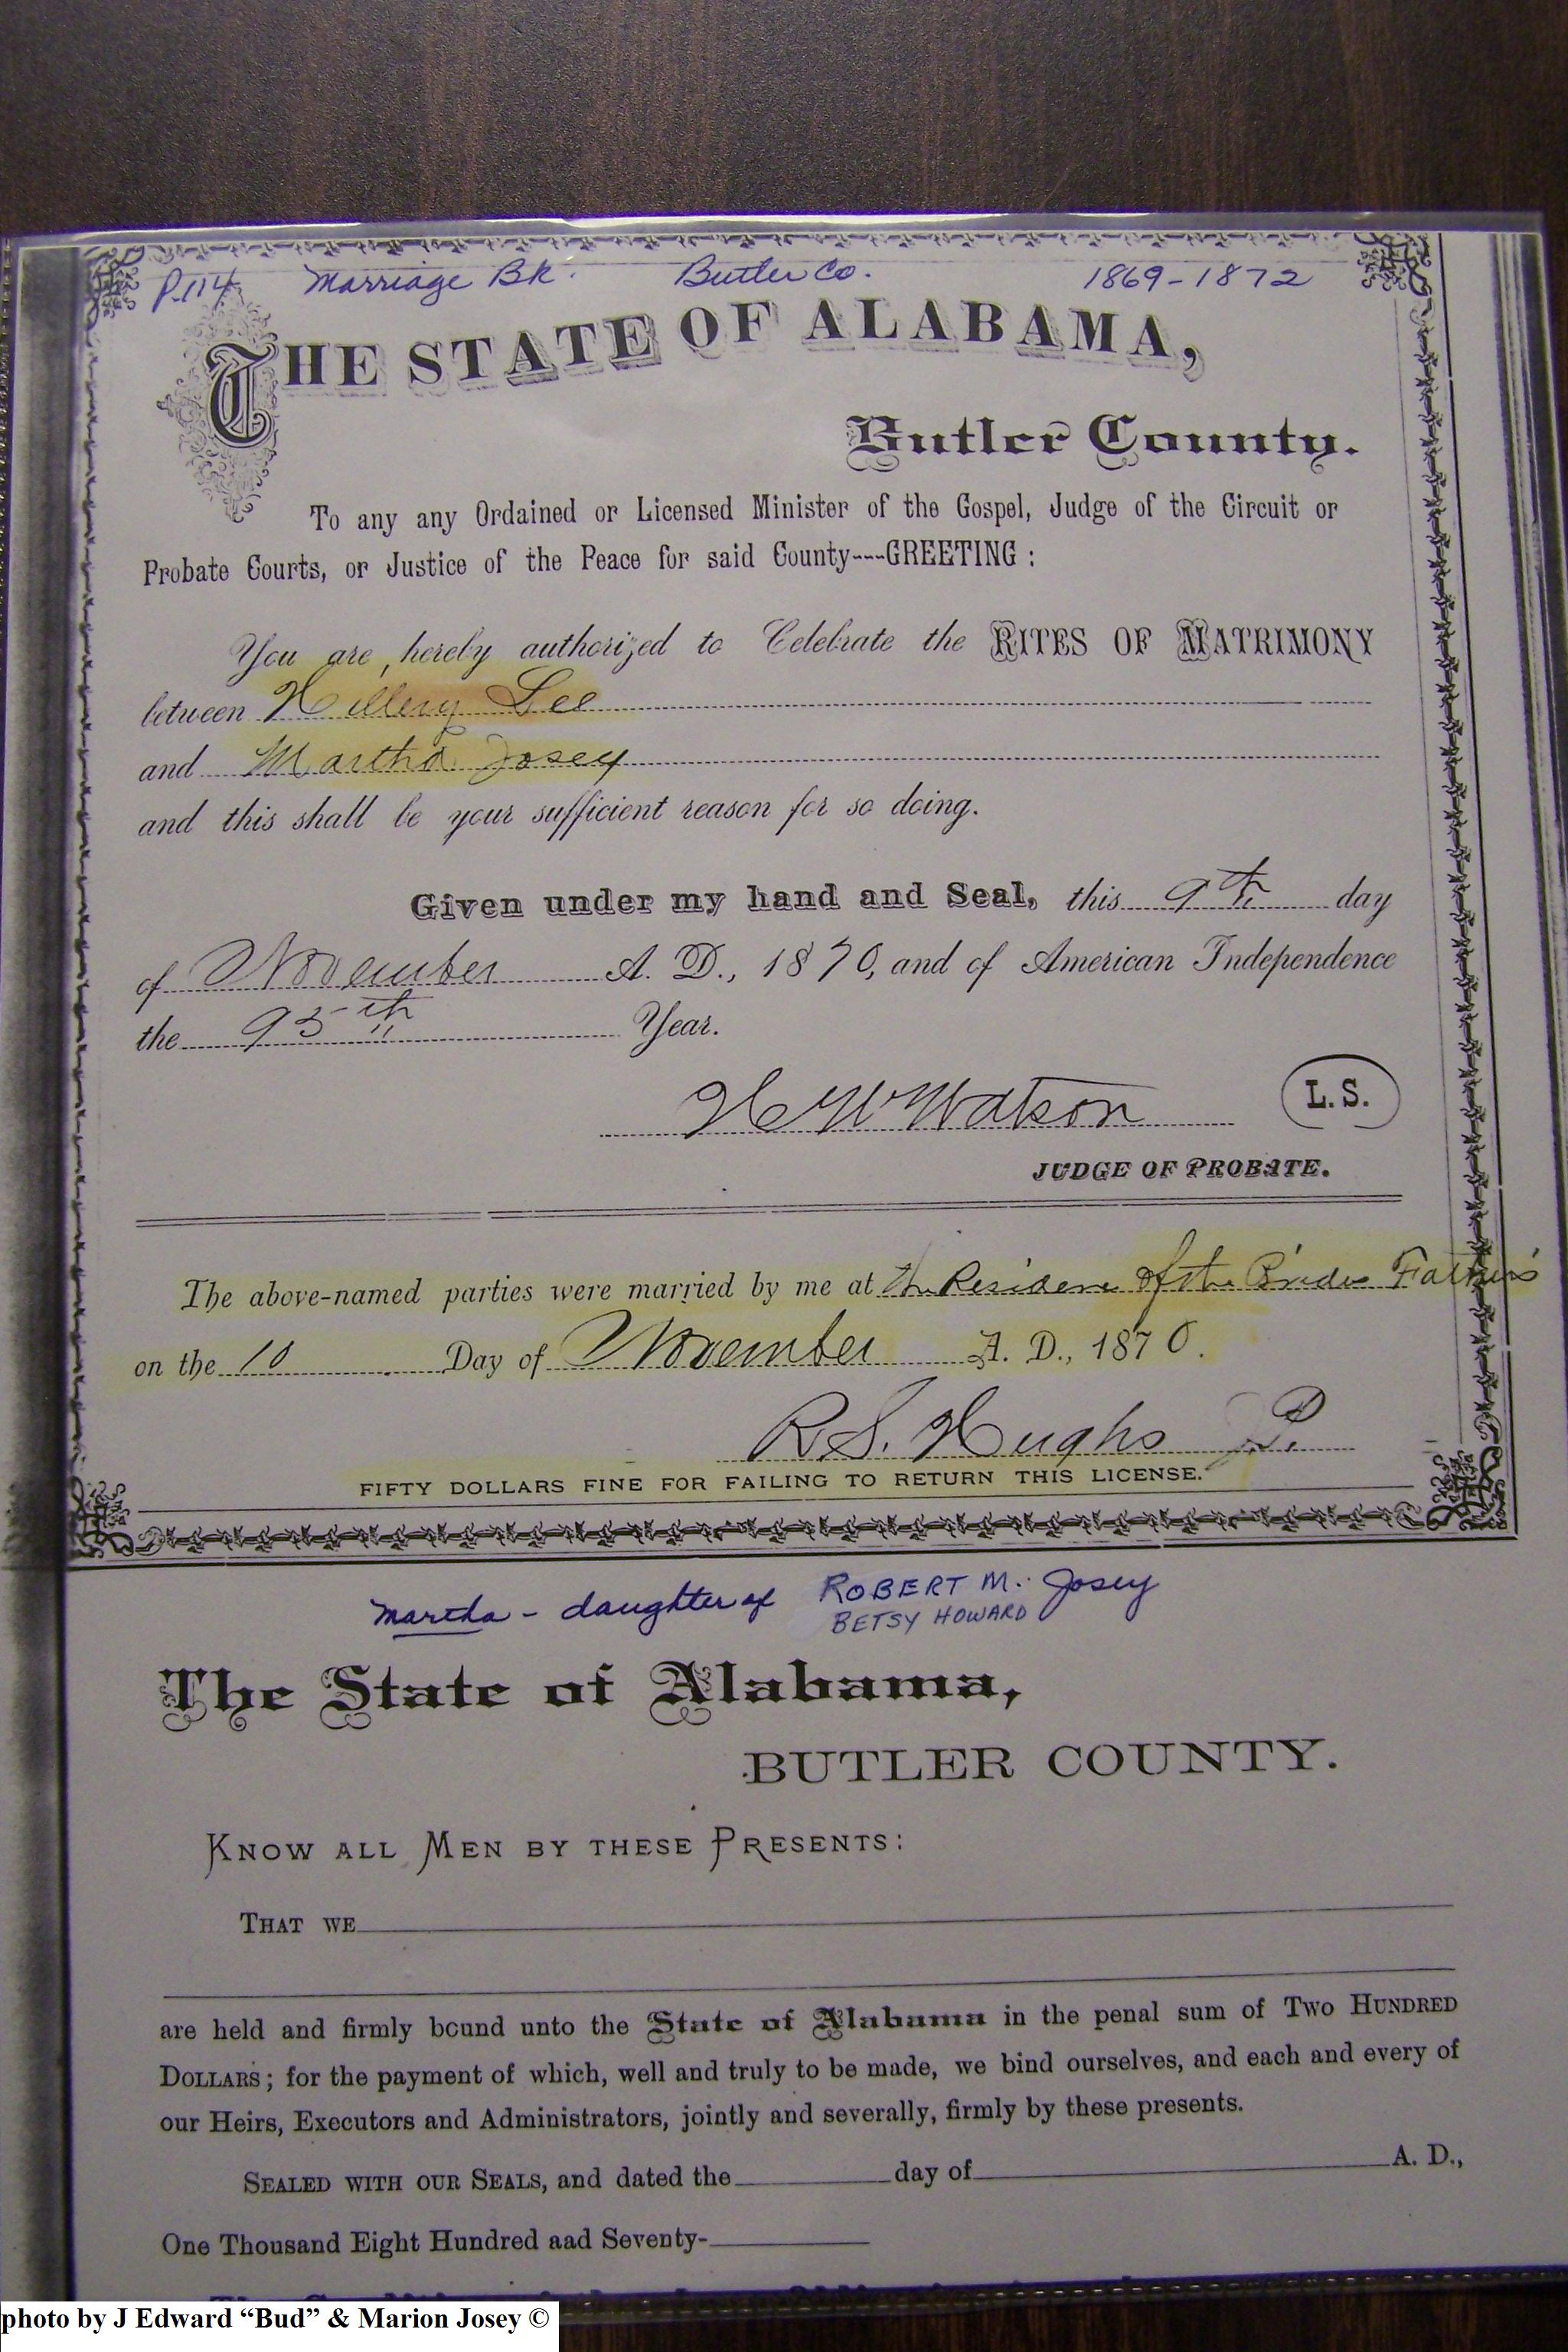 P.114 Marriage Bk. Butler Co. 1869-1872
THE STATE OF ALABAMA,
Butler County.
To any any Ordained or Licensed Minister of the Gospel, Judge of the Circuit or
Probate Courts, or Justice of the Peace for said County---GREETING :
You are, hereby authorized to Celebrate the RITES OF MATRIMONY
between Hillery Lee
and Martha Josey
and this shall be your sufficient reason for so doing.
Given under my hand and Seal, this 9th day
of November A. D., 1870, and of American Independence
the 95th Year.
H W Watson L.S.
JUDGE OF PROBATE.
The above-named parties were married by me at the Residence of the Brides Father's
on the 10 Day of November A. D., 1870.
R.S. Hughs J.P.
FIFTY DOLLARS FINE FOR FAILING TO RETURN THIS LICENSE.
Martha - daughter of ROBERT M. Josey
BETSY HOWARD
The State of Alabama,
BUTLER COUNTY.
KNOW ALL MEN BY THESE PRESENTS:
THAT WE
are held and firmly bound unto the State of Alabama in the penal sum of TWO HUNDRED
DOLLARS; for the payment of which, well and truly to be made, we bind ourselves, and each and every of
our Heirs, Executors and Administrators, jointly and severally, firmly by these presents.
SEALED WITH OUR SEALS, and dated the day of A. D.,
One Thousand Eight Hundred aad Seventy-
photo by J Edward “Bud” & Marion Josey ©